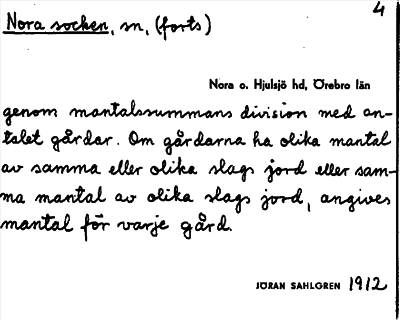 4
Nora socken, sn, (forts)
Nora o. Hjulsjö hd, Örebro län
genom mantalssummans division med an-
talet gårdar. Om gårdarna ha olika mantal
av samma eller olika slags jord eller sam-
ma mantal av olika slags jord, angives
mantal för varje gård.
JÖRAN SAHLGREN 1912